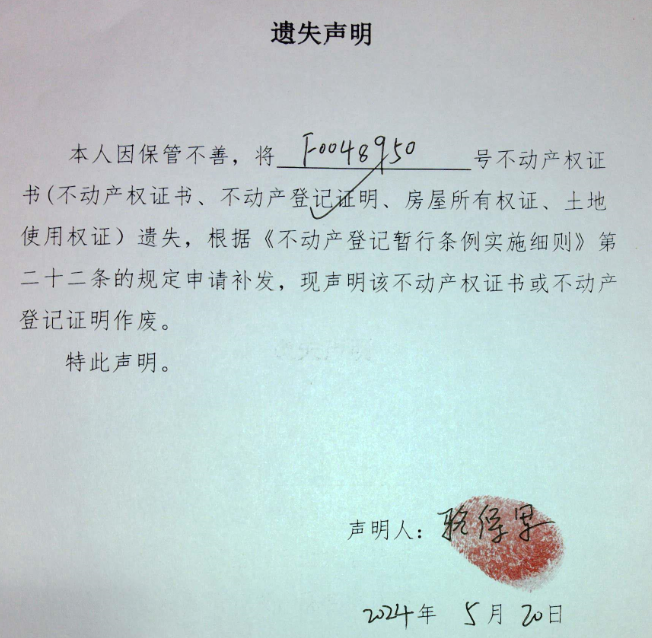 遗失声明
本人因保管不善，将 F0048950 号不动产权证
书(不动产权证书、不动产登记证明、房屋所有权证、土地
使用权证）遗失，根据《不动产登记暂行条例实施细则》第
二十二条的规定申请补发，现声明该不动产权证书或不动产
登记证明作废。
特此声明。
声明人：
2024年 5月 20日